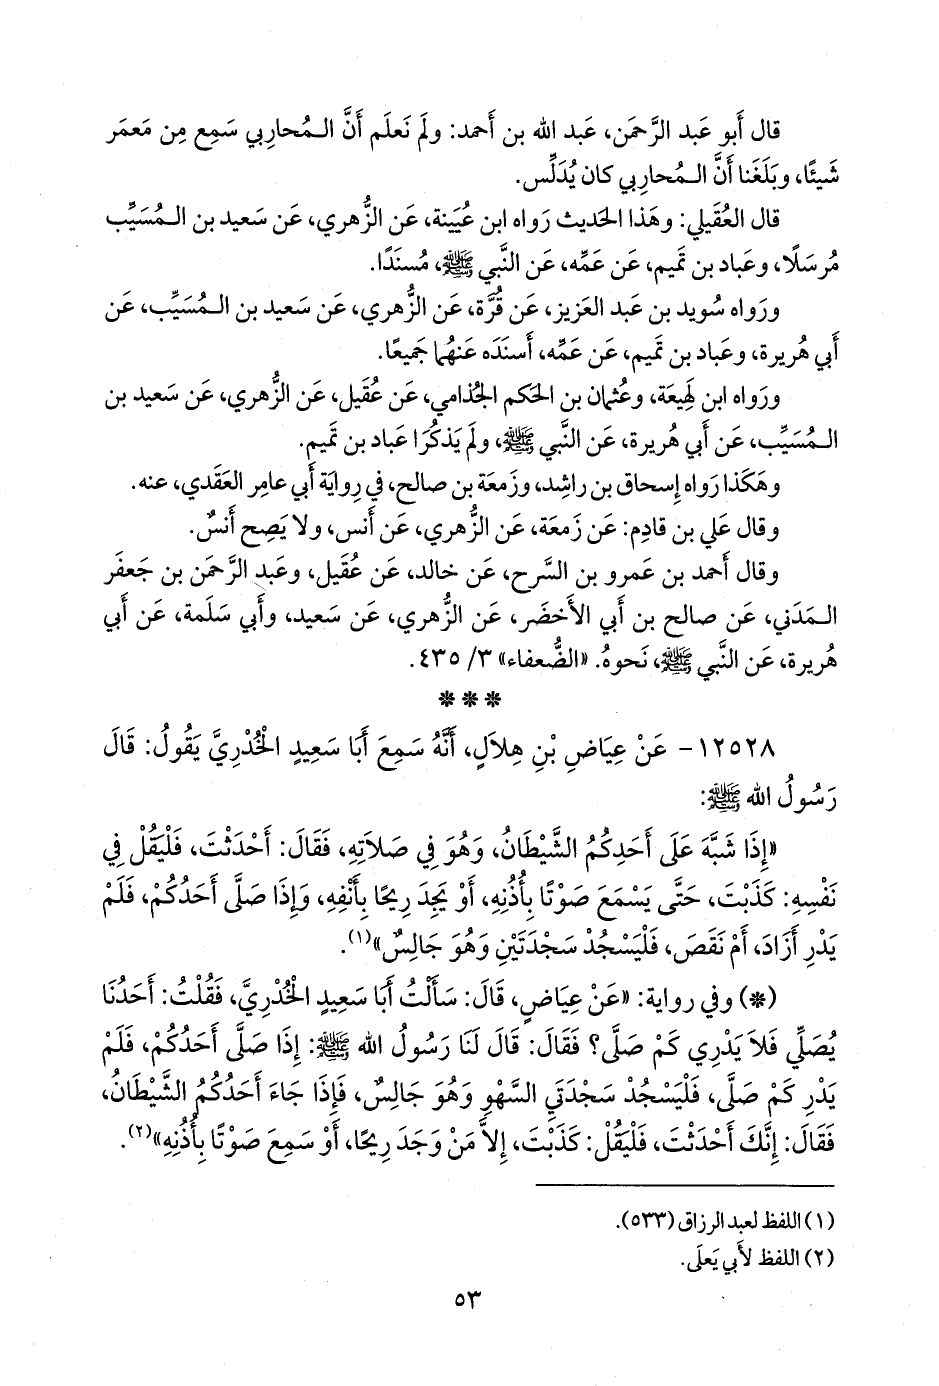 قال أَبو عَبد الرَّحمَن، عَبد الله بن أَحمد: ولَم نَعلَم أَنَّ الـمُحاربي سَمِع مِن مَعمَر
شَيئًا، وبَلَغَنا أَنَّ الـمُحاربي كان يُدَلِّس.
قال العُقَيلي: وهَذا الحَديث رَواه ابن عُيَينة، عَن الزُّهري، عَن سَعيد بن الـمُسَيِّب
مُرسَلًا، وعَباد بن تَميم، عَن عَمِّه، عَن النَّبي ﷺ، مُسنَدًا.
ورَواه سُويد بن عَبد العَزيز، عَن قُرَّة، عَن الزُّهري، عَن سَعيد بن الـمُسَيِّب، عَن
أَبي هُريرة، وعَباد بن تَميم، عَن عَمِّه، أَسنَدَه عَنهُما جَميعًا.
ورَواه ابن لَهِيعَة، وعُثمان بن الحَكم الجُذامي، عَن عُقَيل، عَن الزُّهري، عَن سَعيد بن
الـمُسَيِّب، عَن أَبي هُريرة، عَن النَّبي ﷺ، ولَم يَذكُرَا عَباد بن تَميم.
وهَكَذا رَواه إِسحاق بن راشِد، وزَمعَة بن صالح، في رِوايَة أَبي عامِر العَقَدي، عنه.
وقال عَلي بن قادِم: عَن زَمعَة، عَن الزُّهري، عَن أَنس، ولا يَصِح أَنسٌ.
وقال أَحمد بن عَمرو بن السَّرح، عَن خالد، عَن عُقَيل، وعَبد الرَّحمَن بن جَعفَر
الـمَدَني، عَن صالح بن أَبي الأَخضَر، عَن الزُّهري، عَن سَعيد، وأَبي سَلَمة، عَن أَبي
هُريرة، عَن النَّبي ﷺ، نَحوهُ. «الضُّعفاء» ٣/ ٤٣٥.
* * *
١٢٥٢٨- عَنْ عِيَاضِ بْنِ هِلاَلٍ، أَنَّهُ سَمِعَ أَبَا سَعِيدٍ الْخُدْرِيَّ يَقُولُ: قَالَ
رَسُولُ الله ﷺ:
«إِذَا شَبَّهَ عَلَى أَحَدِكُمُ الشَّيْطَانُ، وَهُوَ فِي صَلاَتِهِ، فَقَالَ: أَحْدَثْتَ، فَلْيَقُلْ فِي
نَفْسِهِ: كَذَبْتَ، حَتَّى يَسْمَعَ صَوْتًا بِأُذُنِهِ، أَوْ يَجِدَ رِيحًا بِأَنْفِهِ، وَإِذَا صَلَّى أَحَدُكُمْ، فَلَمْ
يَدْرِ أَزَادَ، أَمْ نَقَصَ، فَلْيَسْجُدْ سَجْدَتَيْنِ وَهُوَ جَالِسٌ»(١).
(*) وفي رواية: «عَنْ عِيَاضٍ، قَالَ: سَأَلْتُ أَبَا سَعِيدٍ الْخُدْرِيَّ، فَقُلْتُ: أَحَدُنَا
يُصَلِّي فَلاَ يَدْرِي كَمْ صَلَّى؟ فَقَالَ: قَالَ لَنَا رَسُولُ الله ﷺ: إِذَا صَلَّى أَحَدُكُمْ، فَلَمْ
يَدْرِ كَمْ صَلَّى، فَلْيَسْجُدْ سَجْدَتَيِ السَّهْوِ وَهُوَ جَالِسٌ، فَإِذَا جَاءَ أَحَدُكُمُ الشَّيْطَانُ،
فَقَالَ: إِنَّكَ أَحْدَثْتَ، فَلْيَقُلْ: كَذَبْتَ، إِلاَّ مَنْ وَجَدَ رِيحًا، أَوْ سَمِعَ صَوْتًا بِأُذُنِهِ»(٢).
(١) اللفظ لعبد الرزاق (٥٣٣).
(٢) اللفظ لأَبي يَعلَى.
٥٣